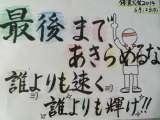 体育大会2014
最後まで
あきらめるな
誰よりも速く
誰よりも輝け!!